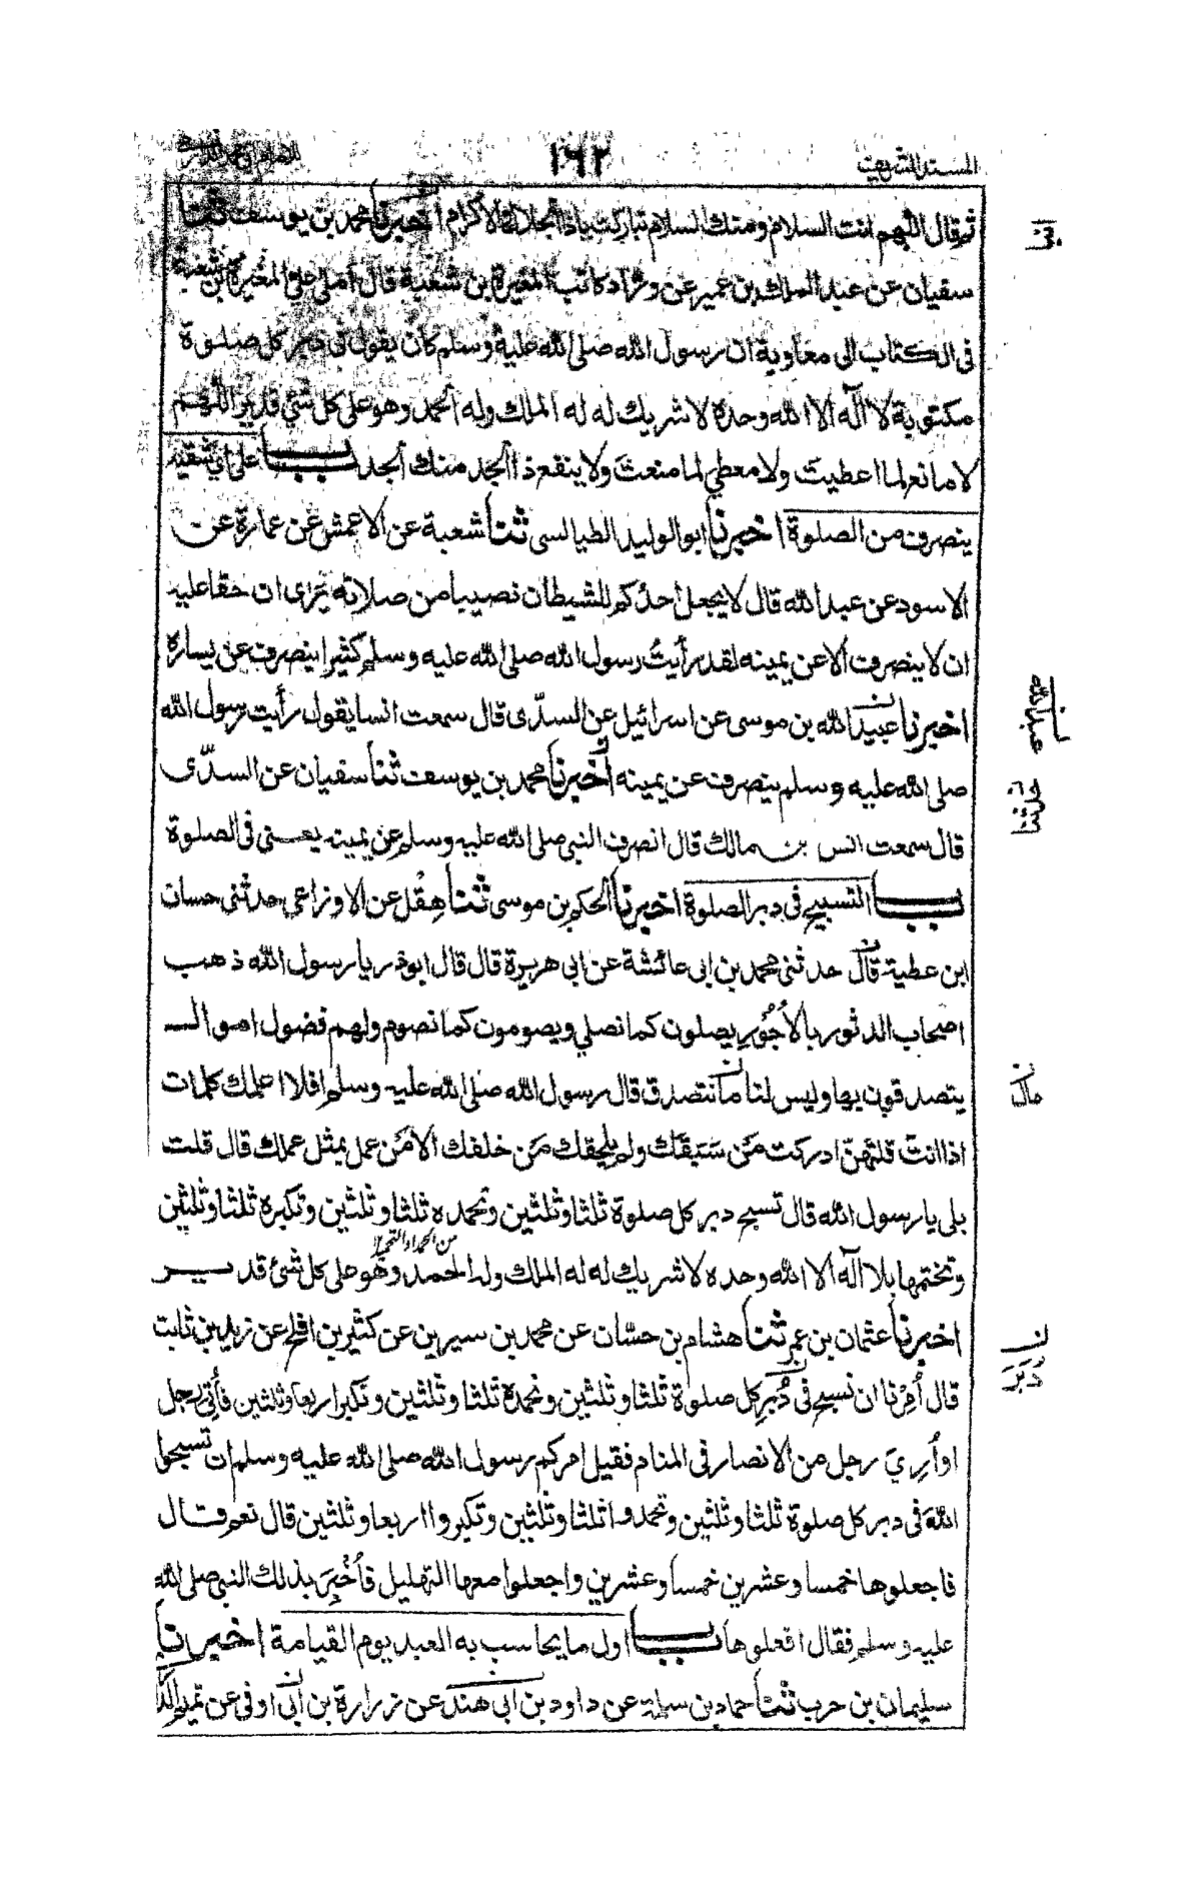 المسند الشريف
١٦٢
ثم قال اللهم انت السلام ومنك السلام تباركت يا ذا الجلال والاكرام اخبرنا محمد بن يوسف ثنا
سفيان عن عبد الملك بن عمير عن وراد كاتب المغيرة بن شعبة قال املى علي المغيرة بن شعبة
فى الكتاب الى معاوية ان رسول الله صلى الله عليه وسلم كان يقول فى دبر كل صلوة
مكتوبة لا اله الا الله وحده لا شريك له له الملك وله الحمد وهو على كل شئ قدير اللهم
لا مانع لما اعطيت ولا معطي لما منعت ولا ينفع ذا الجد منك الجد باب على اي شقيه
ينصرف من الصلوة اخبرنا ابو الوليد الطيالسى ثنا شعبة عن الاعمش عن عمارة عن
الاسود عن عبد الله قال لا يجعل احدكم للشيطان نصيبا من صلاته يرى ان حقا عليه
ان لا ينصرف الا عن يمينه لقد رأيتُ رسول الله صلى الله عليه وسلم كثيرا ينصرف عن يساره
اخبرنا عبيد الله بن موسى عن اسرائيل عن السدّى قال سمعت انسا يقول رأيت رسول الله
عبد الله
صلى الله عليه وسلم ينصرف عن يمينه اخبرنا محمد بن يوسف ثنا سفيان عن السدّى
حدثنا
قال سمعت انس بن مالك قال انصرف النبى صلى الله عليه وسلم عن يمينه يعنى فى الصلوة
باب التسبيح فى دبر الصلوة اخبرنا الحكم بن موسى ثنا هِقْل عن الاوزاعى حدثنى حسان
ابن عطية قال حدثنى محمد بن ابى عائشة عن ابى هريرة قال قال ابو ذر يا رسول الله ذهب
اصحاب الدثور بالاُجُوْرِ يصلون كما نصلي ويصومون كما نصوم ولهم فضول اموال
يتصدقون بها وليس لنا ما نتصدق قال رسول الله صلى الله عليه وسلم افلا اعلمك كلمات
مال
اذا انت قلتهنّ ادركت مَن سَبَقَك ولم يلحقك مَن خلفك الا مَن عمل بمثل عملك قال قلت
بلى يا رسول الله قال تسبح دبر كل صلوة ثلثا وثلثين وتحمده ثلثا وثلثين وتكبره ثلثا وثلثين
وتختمها بلا اله الا الله وحده لا شريك له له الملك وله الحمد وهو على كل شئ قدير
اخبرنا عثمان بن عمر ثنا هشام بن حسّان عن محمد بن سيرين عن كثير بن افلح عن زيد بن ثابت
قال اُمِرْنا ان نسبح فى دُبُرِ كل صلوة ثلثا وثلثين ونحمده ثلثا وثلثين ونكبر اربعا وثلثين فأُتي رجل
دُبَرَ
او اُرِيَ رجل من الانصار فى المنام فقيل امركم رسول الله صلى الله عليه وسلم ان تسبحوا
اللهَ فى دبر كل صلوة ثلثا وثلثين وتحمدوا ثلثا وثلثين وتكبروا اربعا وثلثين قال نعم قال
فاجعلوها خمسا وعشرين خمسا وعشرين واجعلوا معها التهليل فاُخْبِرَ بذلك النبى صلى الله
عليه وسلم فقال افعلوها باب اول ما يحاسب به العبد يوم القيامة اخبرنا
سليمان بن حرب ثنا حماد بن سلمة عن داود بن ابى هند عن زرارة بن ابى اوفى عن تميم